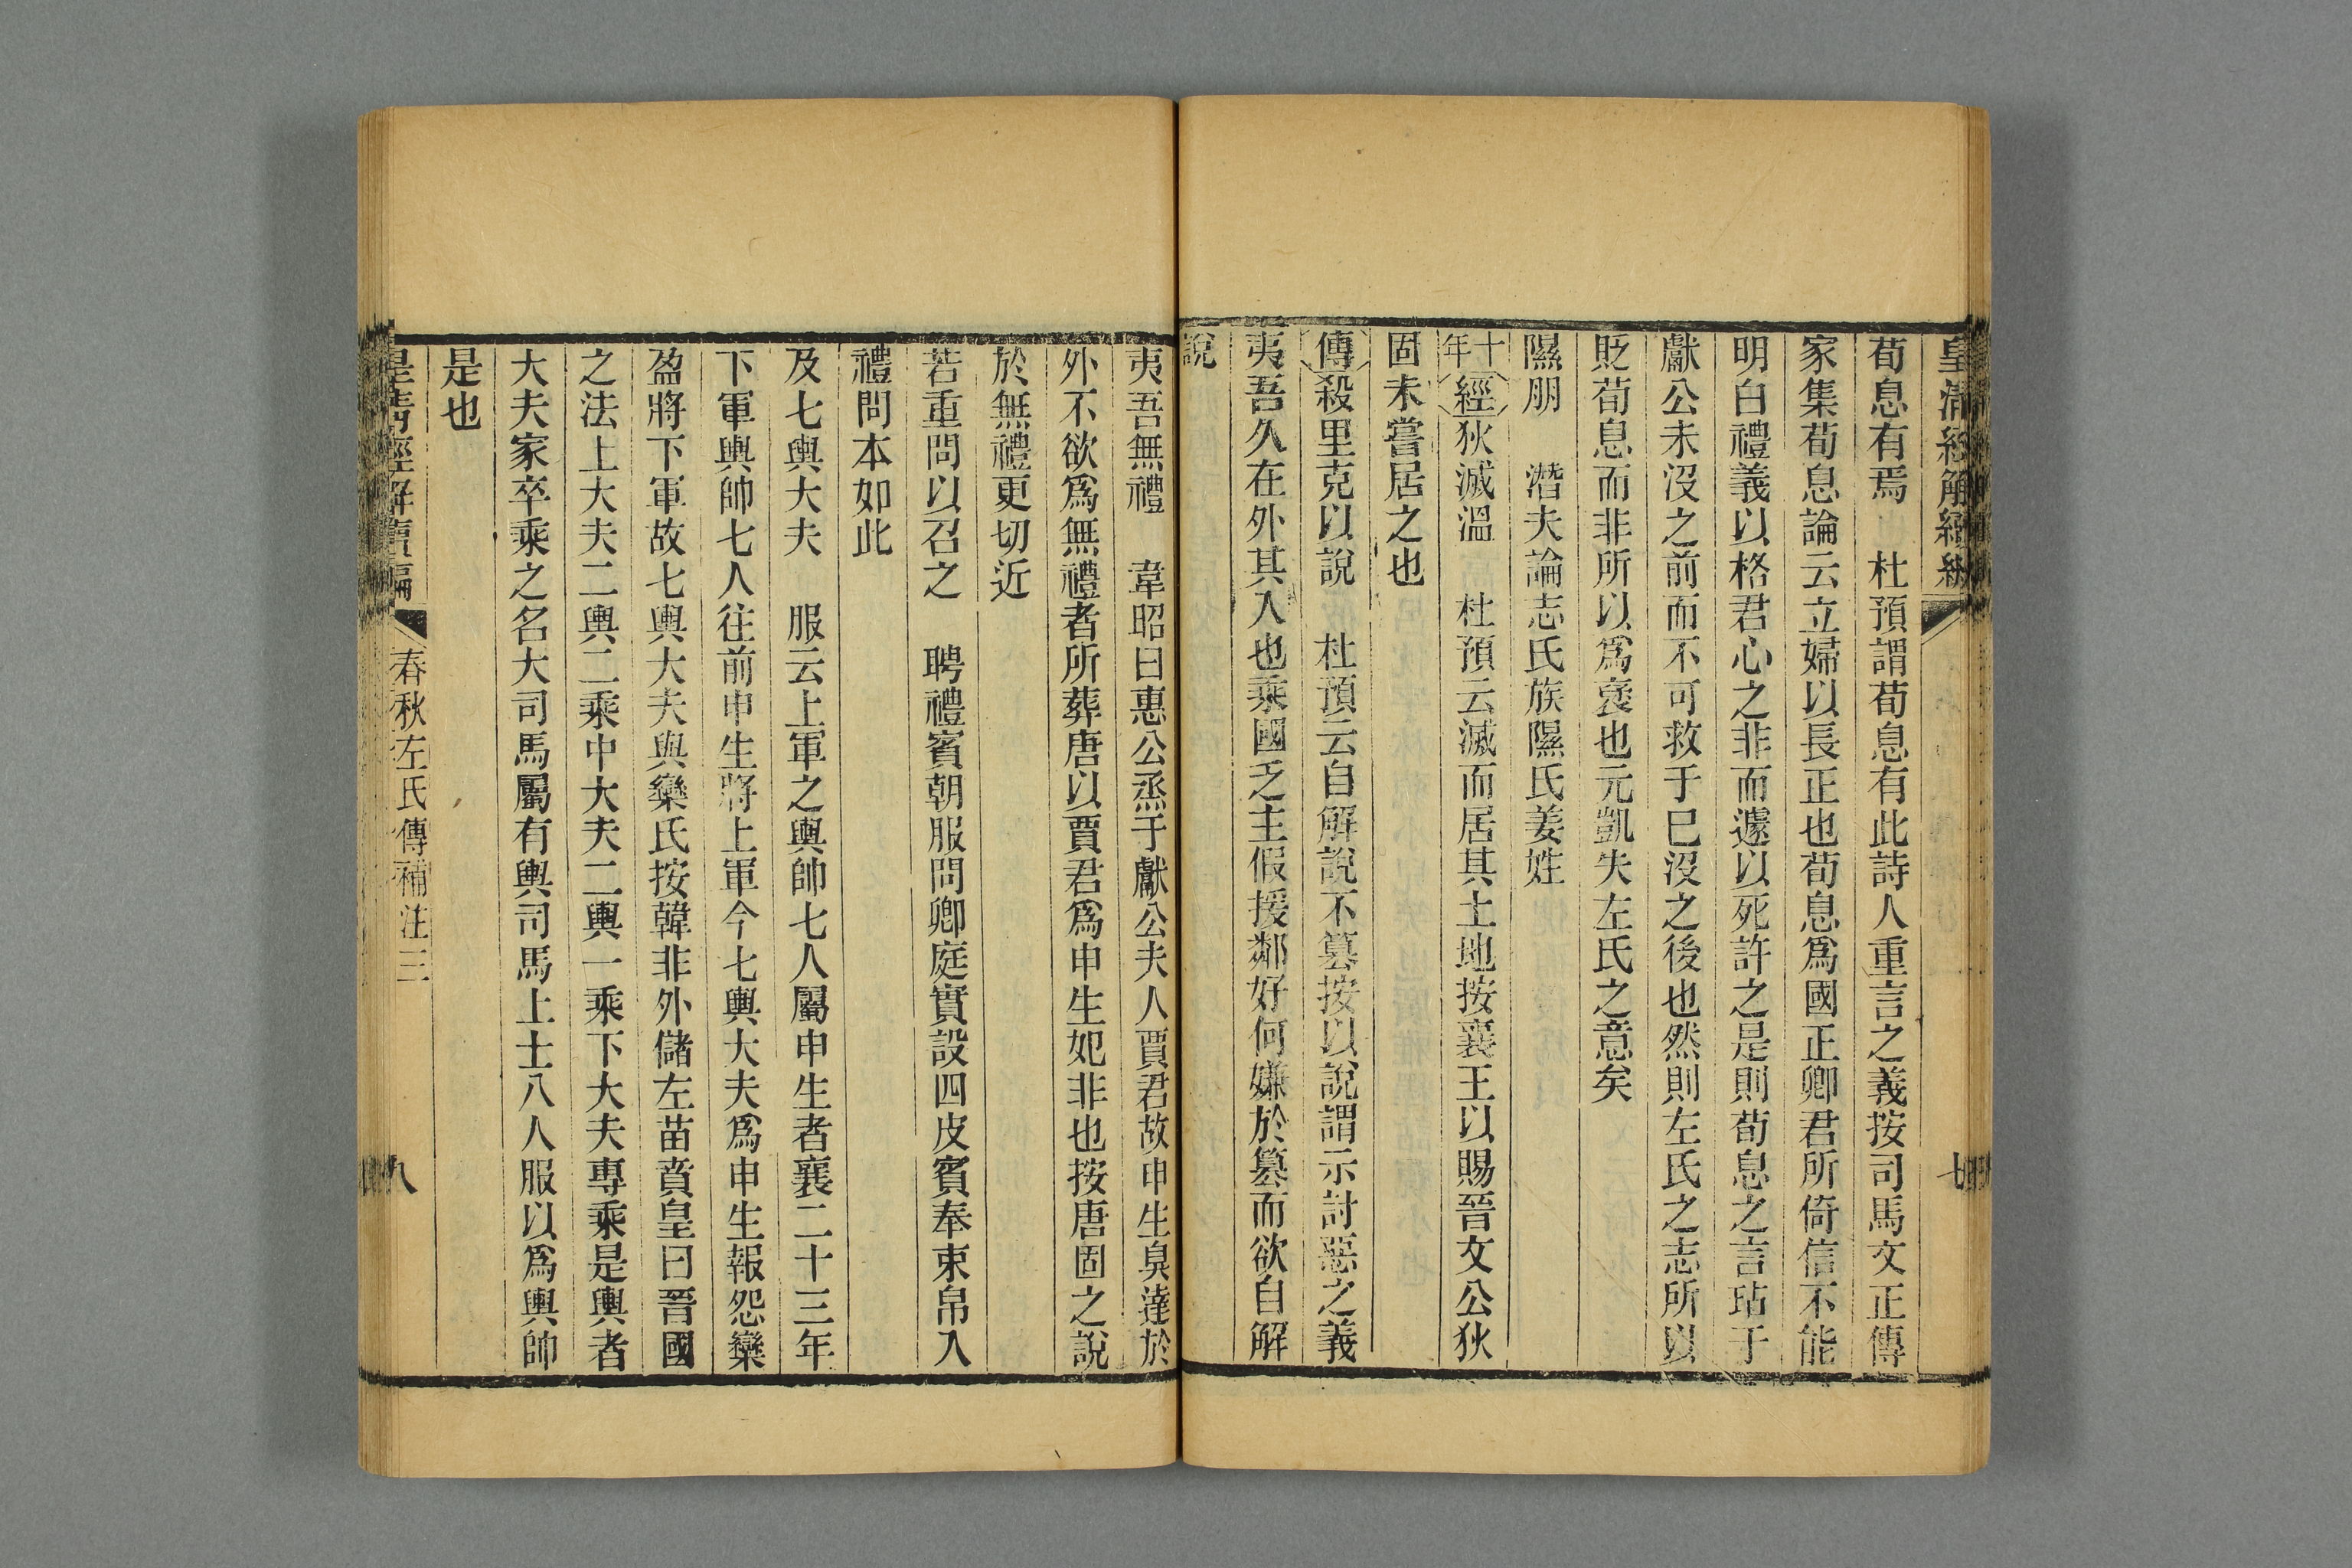 皇清經解續編
七
荀息有焉　杜預謂荀息有此詩人重言之義按司馬文正傳
家集荀息論云立婦以長正也荀息爲國正卿君所倚信不能
明白禮義以格君心之非而遽以死許之是則荀息之言玷于
獻公未沒之前而不可救于已沒之後也然則左氏之志所以
貶荀息而非所以爲褒也元凱失左氏之意矣
隰朋　潛夫論志氏族隰氏姜姓
十年經狄滅溫　杜預云滅而居其土地按襄王以賜晉文公狄
固未嘗居之也
傳殺里克以說　杜預云自解說不篡按以說謂示討惡之義
夷吾久在外其入也乘國乏主假援鄰好何嫌於篡而欲自解
說
夷吾無禮　韋昭曰惠公烝于獻公夫人賈君故申生臭達於
外不欲爲無禮者所葬唐以賈君爲申生妃非也按唐固之說
於無禮更切近
若重問以召之　聘禮賓朝服問卿庭實設四皮賓奉束帛入
禮問本如此
及七輿大夫　服云上軍之輿帥七人屬申生者襄二十三年
下軍輿帥七人往前申生將上軍今七輿大夫爲申生報怨欒
盈將下軍故七輿大夫與欒氏按韓非外儲左苗賁皇曰晉國
之法上大夫二輿二乘中大夫二輿一乘下大夫專乘是輿者
大夫家卒乘之名大司馬屬有輿司馬上士八人服以爲輿帥
是也
皇清經解續編
春秋左氏傳補注三
八